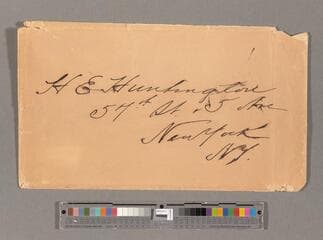 H E Huntington
57th St. & 5 Ave
New York
N.Y.